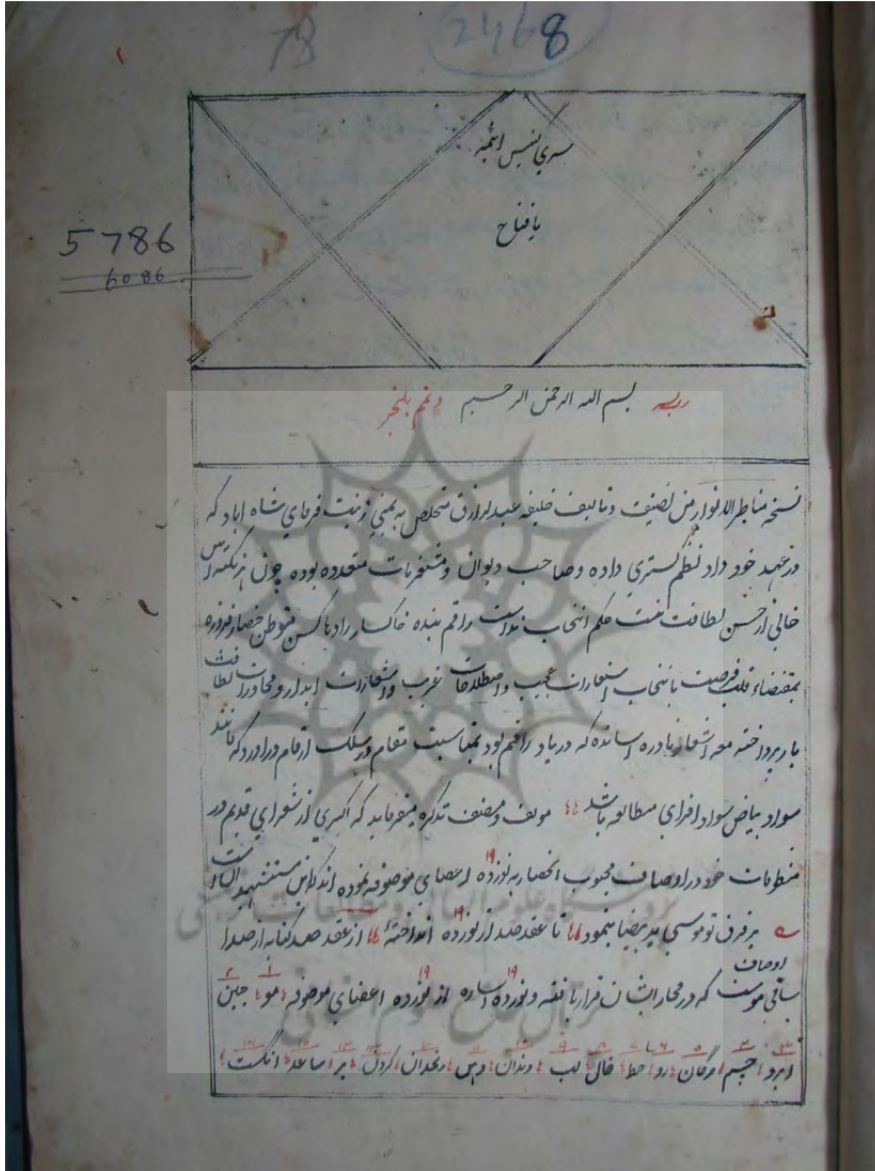 78
2468
سری نسیس ائمبه
یا فتاح
5786
6086
ربیسر بسم الله الرحمن الرحیم وتمم بلخیر
نسخه مناظر الانوار من تصنیف و تالیف خلیفه عبدالرزاق متخلص به یمینی زینت فرمای شاه اباد که
در عهد خود داد نظم گستری داده و صاحب دیوان و مثنویات متعدده بوده چون هر نکته اش
خالی از حسن لطافت نیست حکم انتخاب نداشت راقم بنده خاکسار رادهاکسن متوطن حصار فیروزه
بمقتضاء قلت فرصت بانتخاب استعارات عجیب و اصطلاحات غریب و اشعارات ابدار و محاورات لطافت
بار پرداخته معه اشعار نادره اساتذه که در یاد راقم بود بمناسبت مقام در سلک ارقام دراورد که مانند
سواد بیاض سواد افزای مطالعه باشد مولف و مصنف تذکره میفرماید که اکثری از شعرای قدیم در
منظومات خود در اوصاف محبوب انحصار به نوزده ۱۹ اعضای موصوفه نموده اند
بر فرق تو موسی ید بیضا بنمود تا عقد صد از نوزده ۱۹ انداخته از عقد صد کنایه از صد
اوصاف
باقی موست که در محاورات شان قرار یافته و نوزده ۱۹ اشاره از نوزده ۱۹ اعضای موصوفه مو ۱ جبین ۲
ابرو ۳ چشم ۴ مژگان ۵ رو ۶ خط ۷ خال ۸ لب ۹ دندان ۱۰ دهن ۱۱ زنخدان ۱۲ گردن ۱۳ بر ۱۴ ساعد ۱۵ انگشت ۱۶
پژوهشگاه علوم انسانی و مطالعات فرهنگی
پرتال جامع علوم انسانی